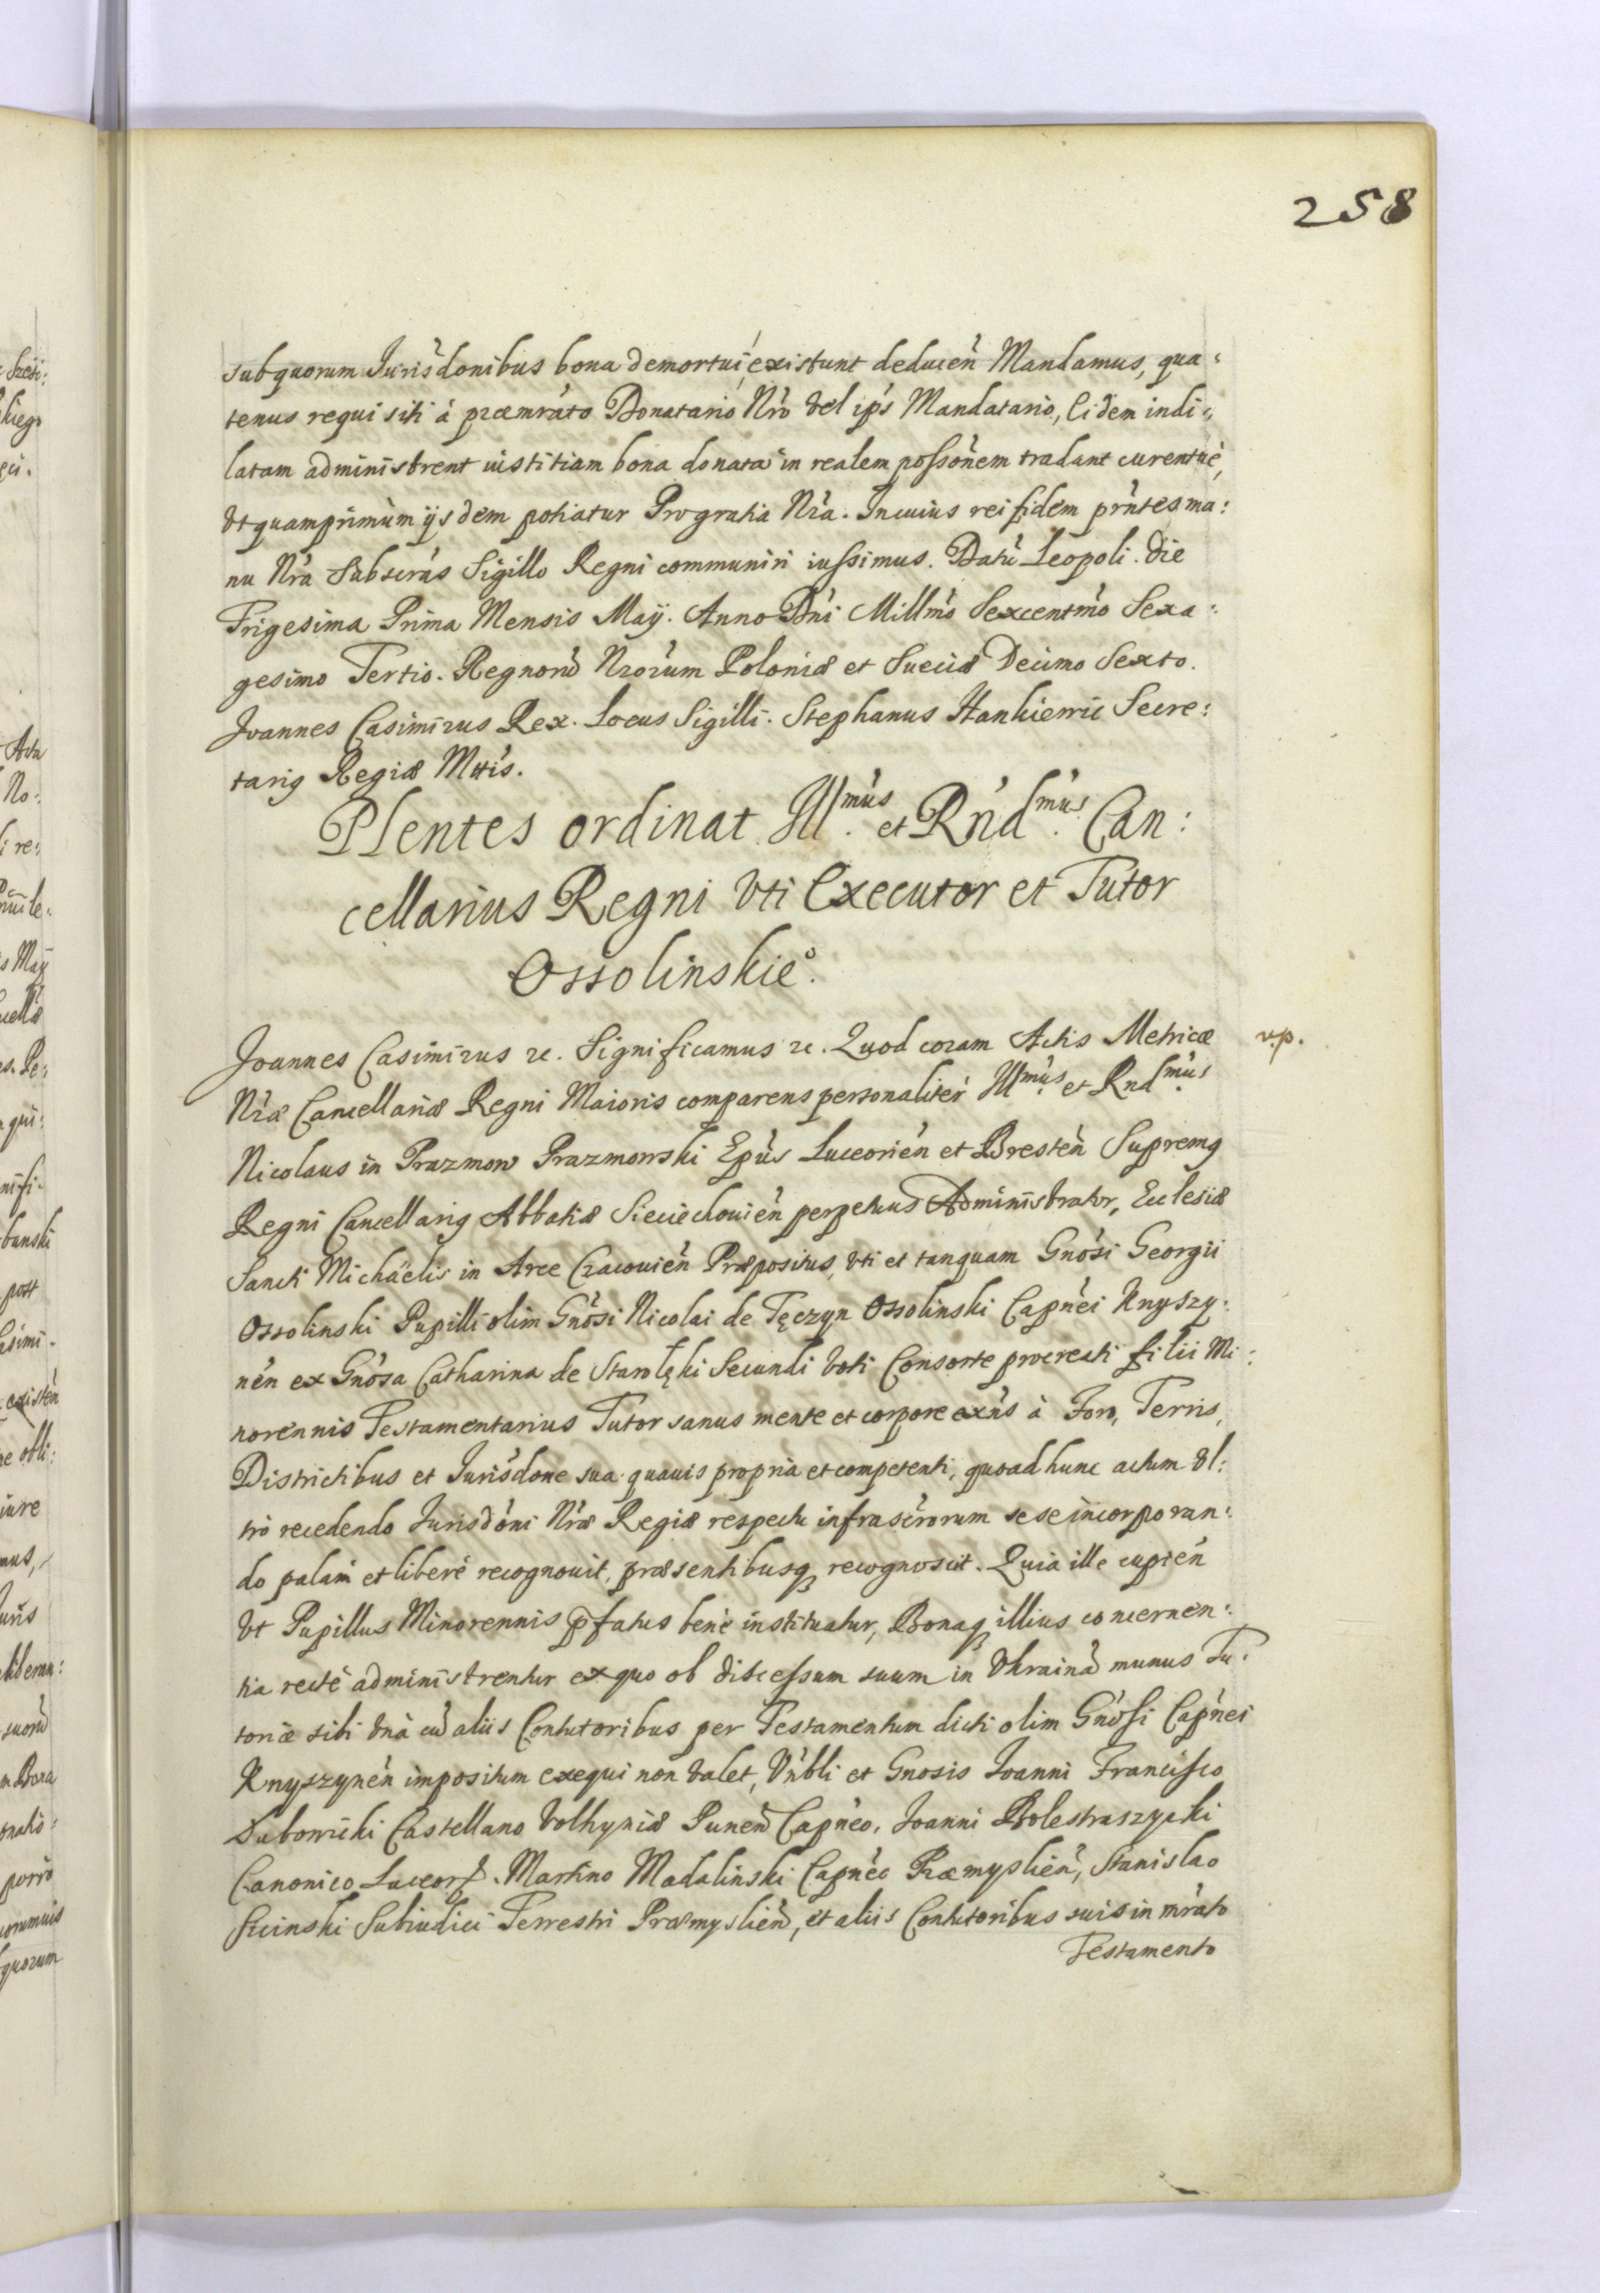 258
sub quorum Jurisdonibus bona demortui, existunt deducen̄ Mandamus, qua:
tenus requisiti à præmráto Donatario Nr̃o vel ip̃s Mandatario, Eidem indi:
latam administrent iustitiam bona donata in realem poſsõnem tradant curentue,
vt quamprimùm ijsdem potiatur Pro gratia Nr̃a. In cuius rei fidem pr̃ntes ma:
nu Nr̃a Subscr̃as Sigillo Regni communiri iuſsimus. Datũ Leopoli. Die
Trigesima Prima Mensis Maÿ. Anno Dn̄i Millm̃o Sexcentm̃o Sexa:
gesimo Tertio. Regnorũ Nr̃orum Poloniæ et Sueciæ Decimo Sexto.
Joannes Casimirus Rex. Locus Sigilli. Stephanus Hankiewic Secre:
tarig Regiæ Mttis.
Plentes ordinat Jllmũs. et Rn̄dmũs. Can:
cellarius Regni vti Executor et Tutor
Ossolinskie͠o.
Joannes Casimirus &c. Significamus &c. Quod coram Actis Metricæ
v.p.
Nr̃æ Cancellariæ Regni Maioris comparens personalitèr Jllmũs. et Rndmũs.
Nicolaus in Prazmow Prazmowski Epũs Luceorien̄ et Bresten̄ Supremg
Regni Cancellarig Abbatiæ Sieciechouien̄ perpetuus Administrator, Ecclesiæ
Sancti Michäelis in Arce Cracouien̄ Præpositus, vti et tanquam Gnõsi Georgii
Ossolinski Pupilli olim Gnõsi Nicolai de Tęczyn Ossolinski Capn̄ei Knyszy:
nen̄ ex Gnõsa Catharina de Starołęki Secundi voti Consorte procreati filii Mi:
norennis Testamentarius Tutor sanus mente et corpore exñs à Foro, Terris,
Districtibus et Jurisdone sua quauis propria et competenti, quoad hunc actum vl:
trò recedendo Jurisdõni Nr̃æ Regiæ respectu infrascr̃orum sese incorporan:
do palàm et liberè recognouit, præsentibusq; recognoscit. Quia ille cupien̄
vt Pupillus Minorennis p̃fatus benè instituatur, Bonaq; illius concernen:
tia rectè administrentur ex quo ob discessum suum in Vkrainã munus Tu:
toriæ sibi vnà cũ aliis Contutoribus per Testamentum dicti olim Gnõsi Capn̄ei
Knyszynen̄ impositum exequi non valet, Vn̄bli et Gnosis Joanni Francisco
Lubowicki Castellano Volhyniæ Punen̄ Capn̄eo, Joanni Bolestraszycki
Canonico Luceor. Martino Madalinski Capn̄eo Præmyslien̄, Stanislao
Sicinski Subiudici Terrestri Præmyslien̄, et aliis Contutoribus suis in mr̃ato
Testamento